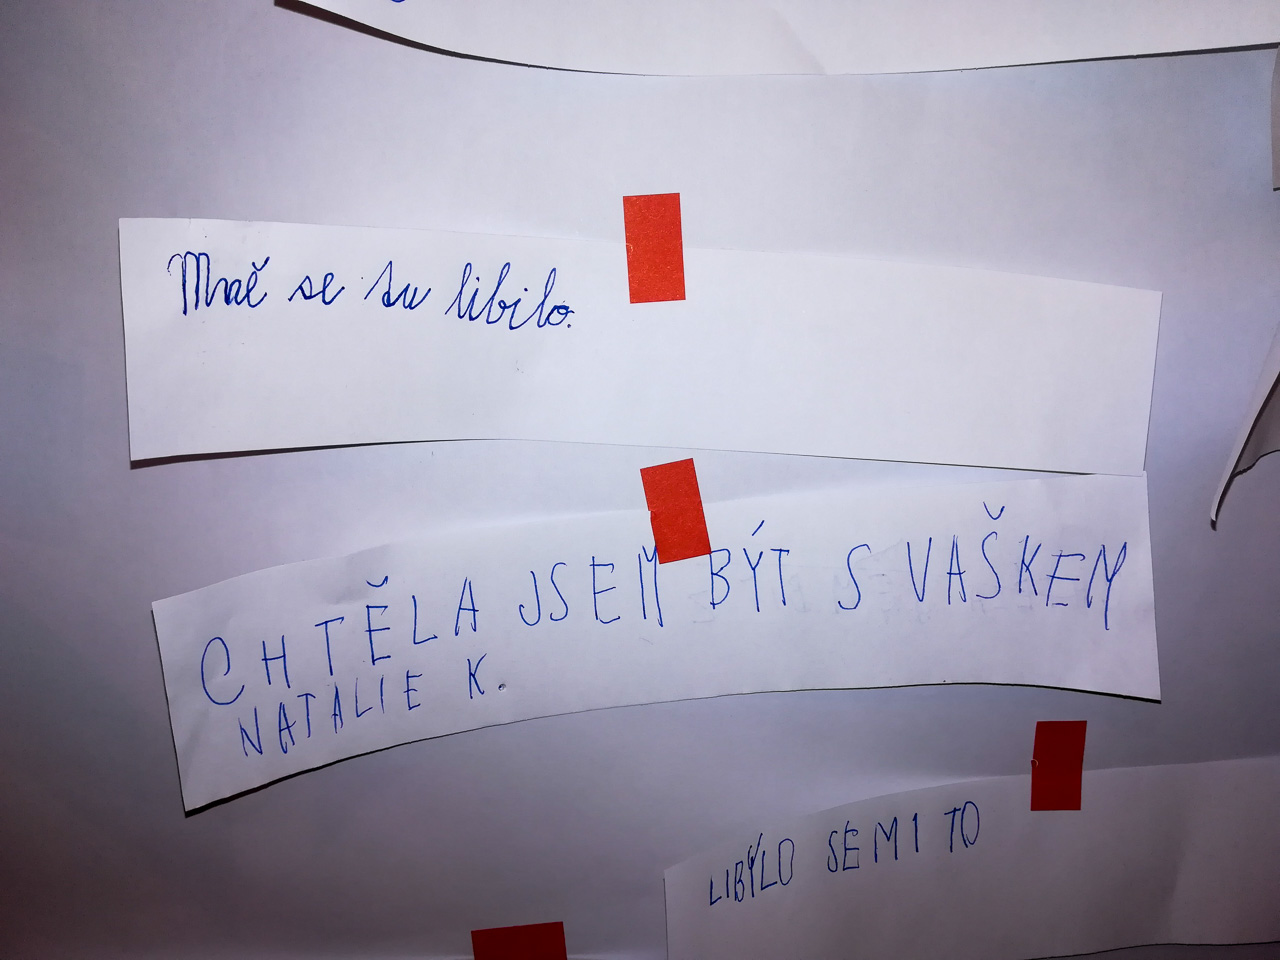 Mně se tu libilo.
CHTĚLA JSEM BÝT S VAŠKEM
NATALIE K.
LIBÝLO SE MI TO